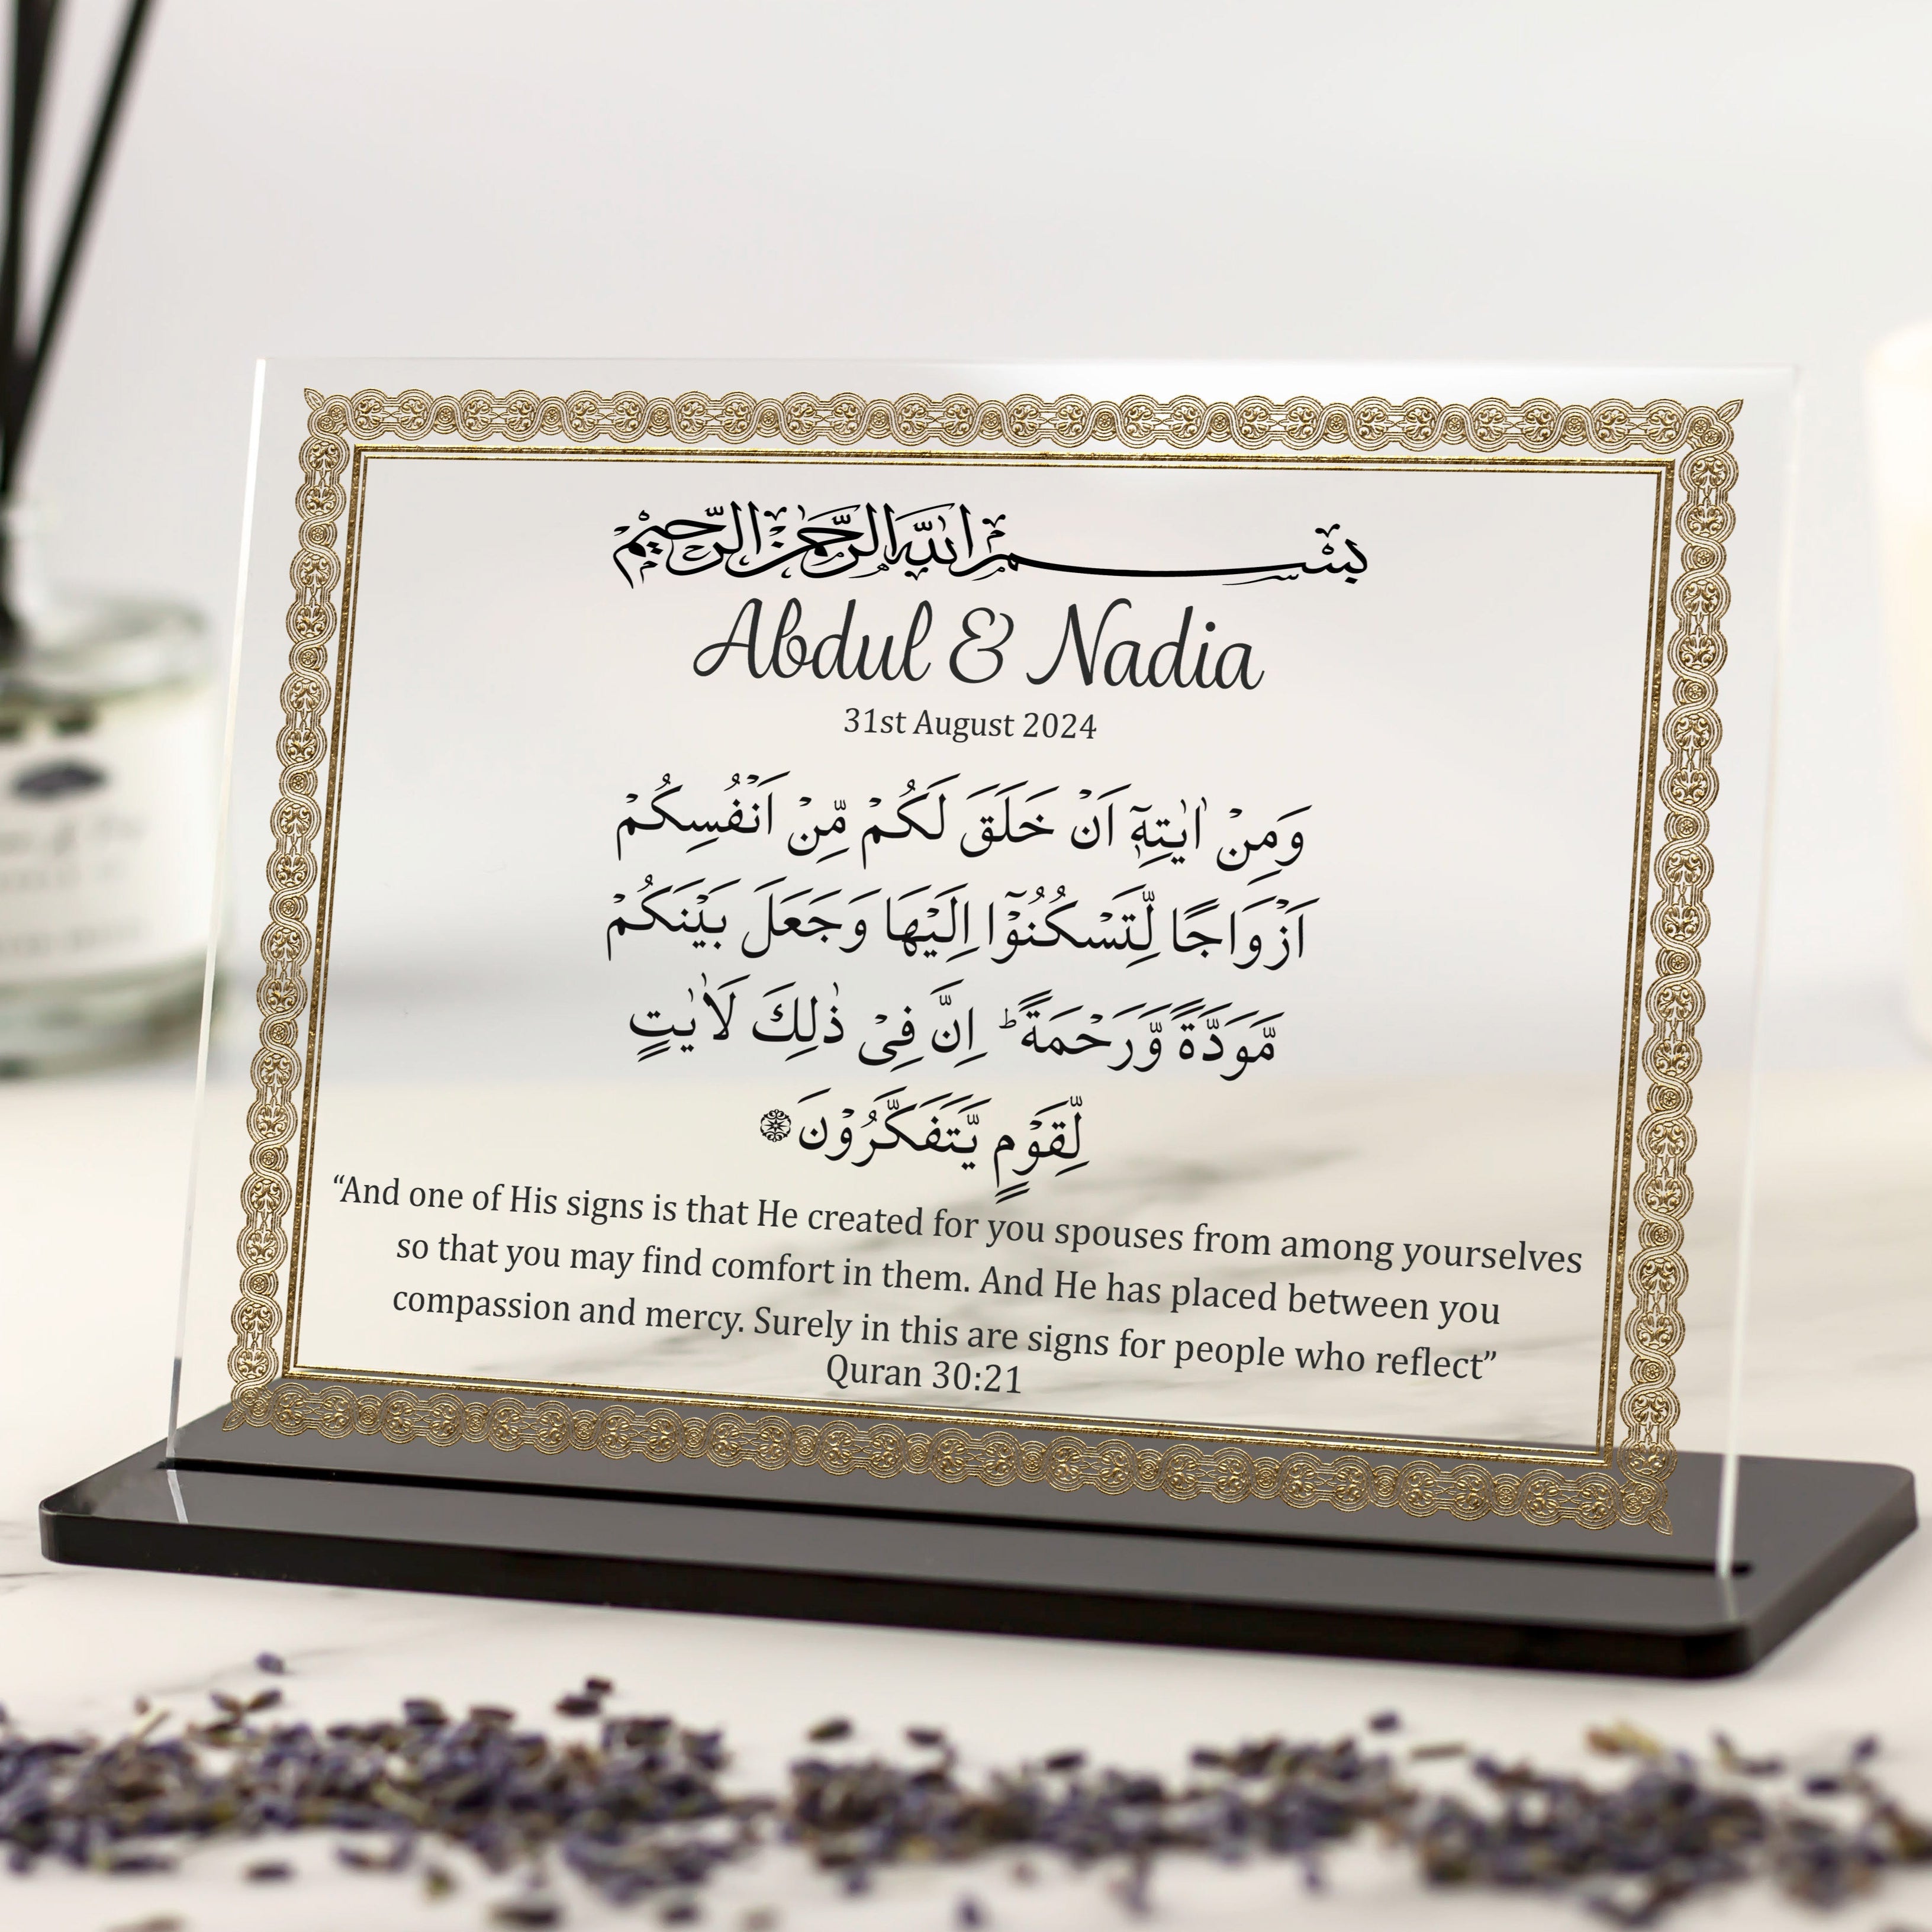 بِسْمِ اللهِ الرَّحْمٰنِ الرَّحِيْمِ
Abdul & Nadia
31st August 2024
وَمِنْ اٰيٰتِهٖٓ اَنْ خَلَقَ لَكُمْ مِّنْ اَنْفُسِكُمْ
اَزْوَاجًا لِّتَسْكُنُوْٓا اِلَيْهَا وَجَعَلَ بَيْنَكُمْ
مَّوَدَّةً وَّرَحْمَةً ؕ اِنَّ فِىْ ذٰلِكَ لَاٰيٰتٍ
لِّقَوْمٍ يَّتَفَكَّرُوْنَ
“And one of His signs is that He created for you spouses from among yourselves
so that you may find comfort in them. And He has placed between you
compassion and mercy. Surely in this are signs for people who reflect”
Quran 30:21